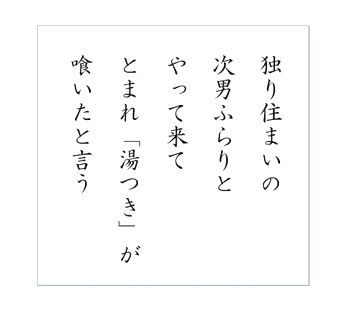 独り住まいの
次男ふらりと
やって来て
とまれ「湯つき」が
喰いたと言う